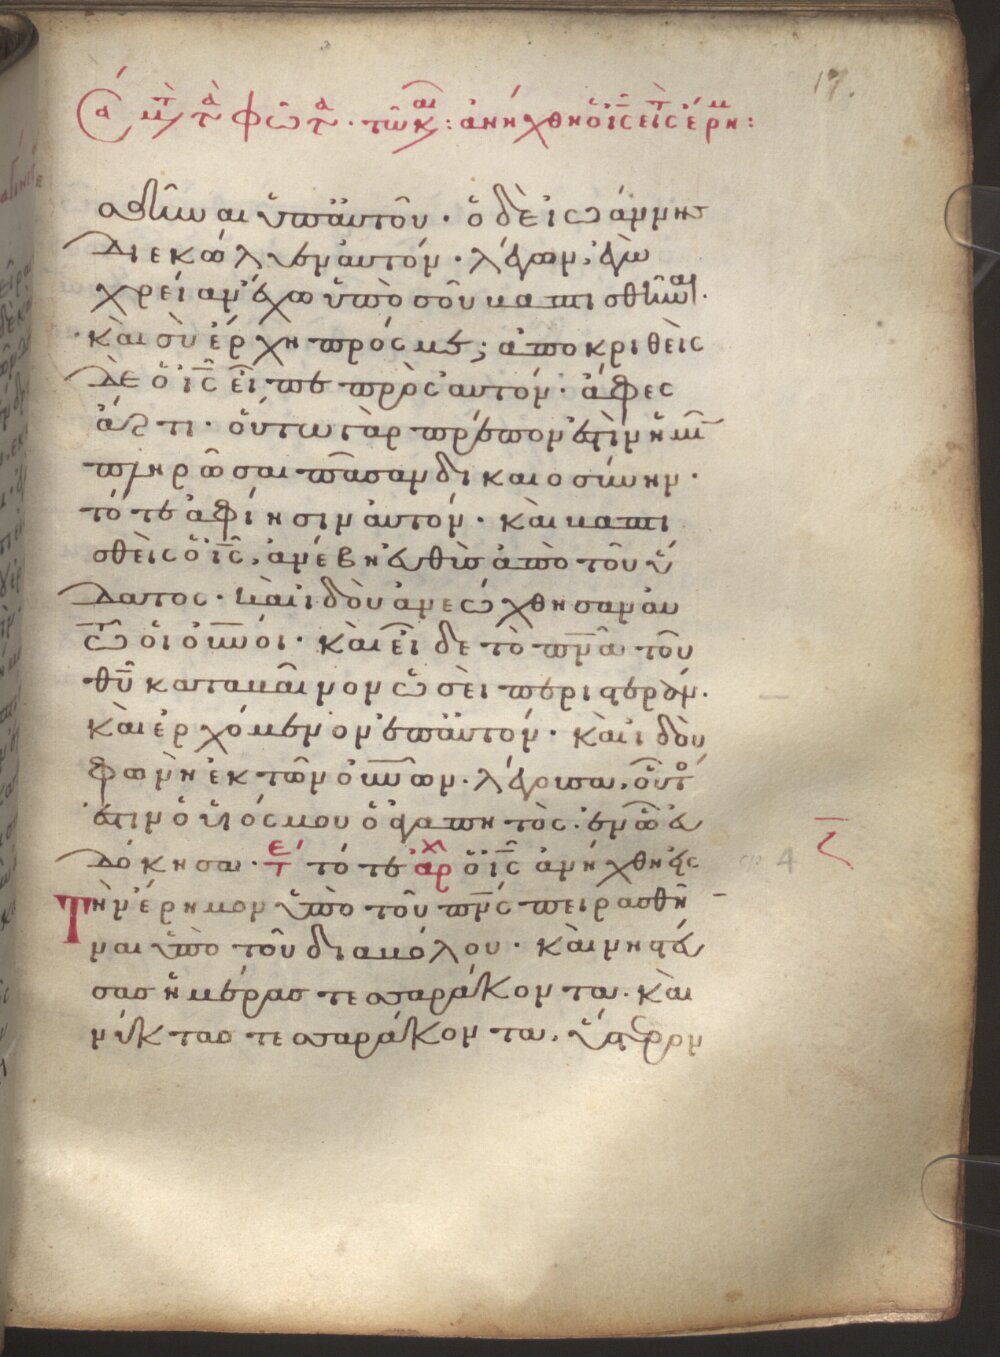 17.
Σα μτ τὰ φῶτα. τῶ και: ἀνήχθη ὁ ις εἰς τ ἐρημ:
αβῆναι ὑπ' αὐτοῦ. ὁ δὲ ἰωάννης
διεκώλυεν αὐτόν. λέγων, ἐγὼ
χρείαν ἔχω ὑπὸ σοῦ βαπτισθῆναι.
καὶ σὺ ἔρχη πρός με; ἀποκριθεὶς
δὲ ὁ ις εἶπε πρὸς αὐτόν. ἄφες
ἄρτι. οὕτω γὰρ πρέπον ἐστὶν ἡμῖν
πληρῶσαι πᾶσαν δικαιοσύνην.
τότε ἀφίησιν αὐτόν. καὶ βαπτι
σθεὶς ὁ ις, ἀνέβη εὐθὺς ἀπὸ τοῦ ὕ
δατος. καὶ ἰδοὺ ἀνεώχθησαν αυ
τῶ οἱ οὐνοι. καὶ εἶδε τὸ πνα τοῦ
θυ καταβαῖνον ὡσεὶ περιστερὰν.
καὶ ἐρχόμενον ἐπ' αὐτόν. καὶ ἰδοὺ
φωνὴ ἐκ τῶν οὐνων. λέγουσα, οὗτός
ἐστιν ὁ υἱός μου ὁ ἀγαπητὸς. ἐν ᾧ εὐ
δόκησα. τε τότε ἀρχ ὁ ις ἀνήχθη εἰς
τὴν ἔρημον ὑπὸ τοῦ πνς πειρασθῆ
ναι ὑπὸ τοῦ διαβόλου. καὶ νηστεύ
σας ἡμέρας τεσσαράκοντα. καὶ
νύκτας τεσσαράκοντα, ὕστερον
ζ
4